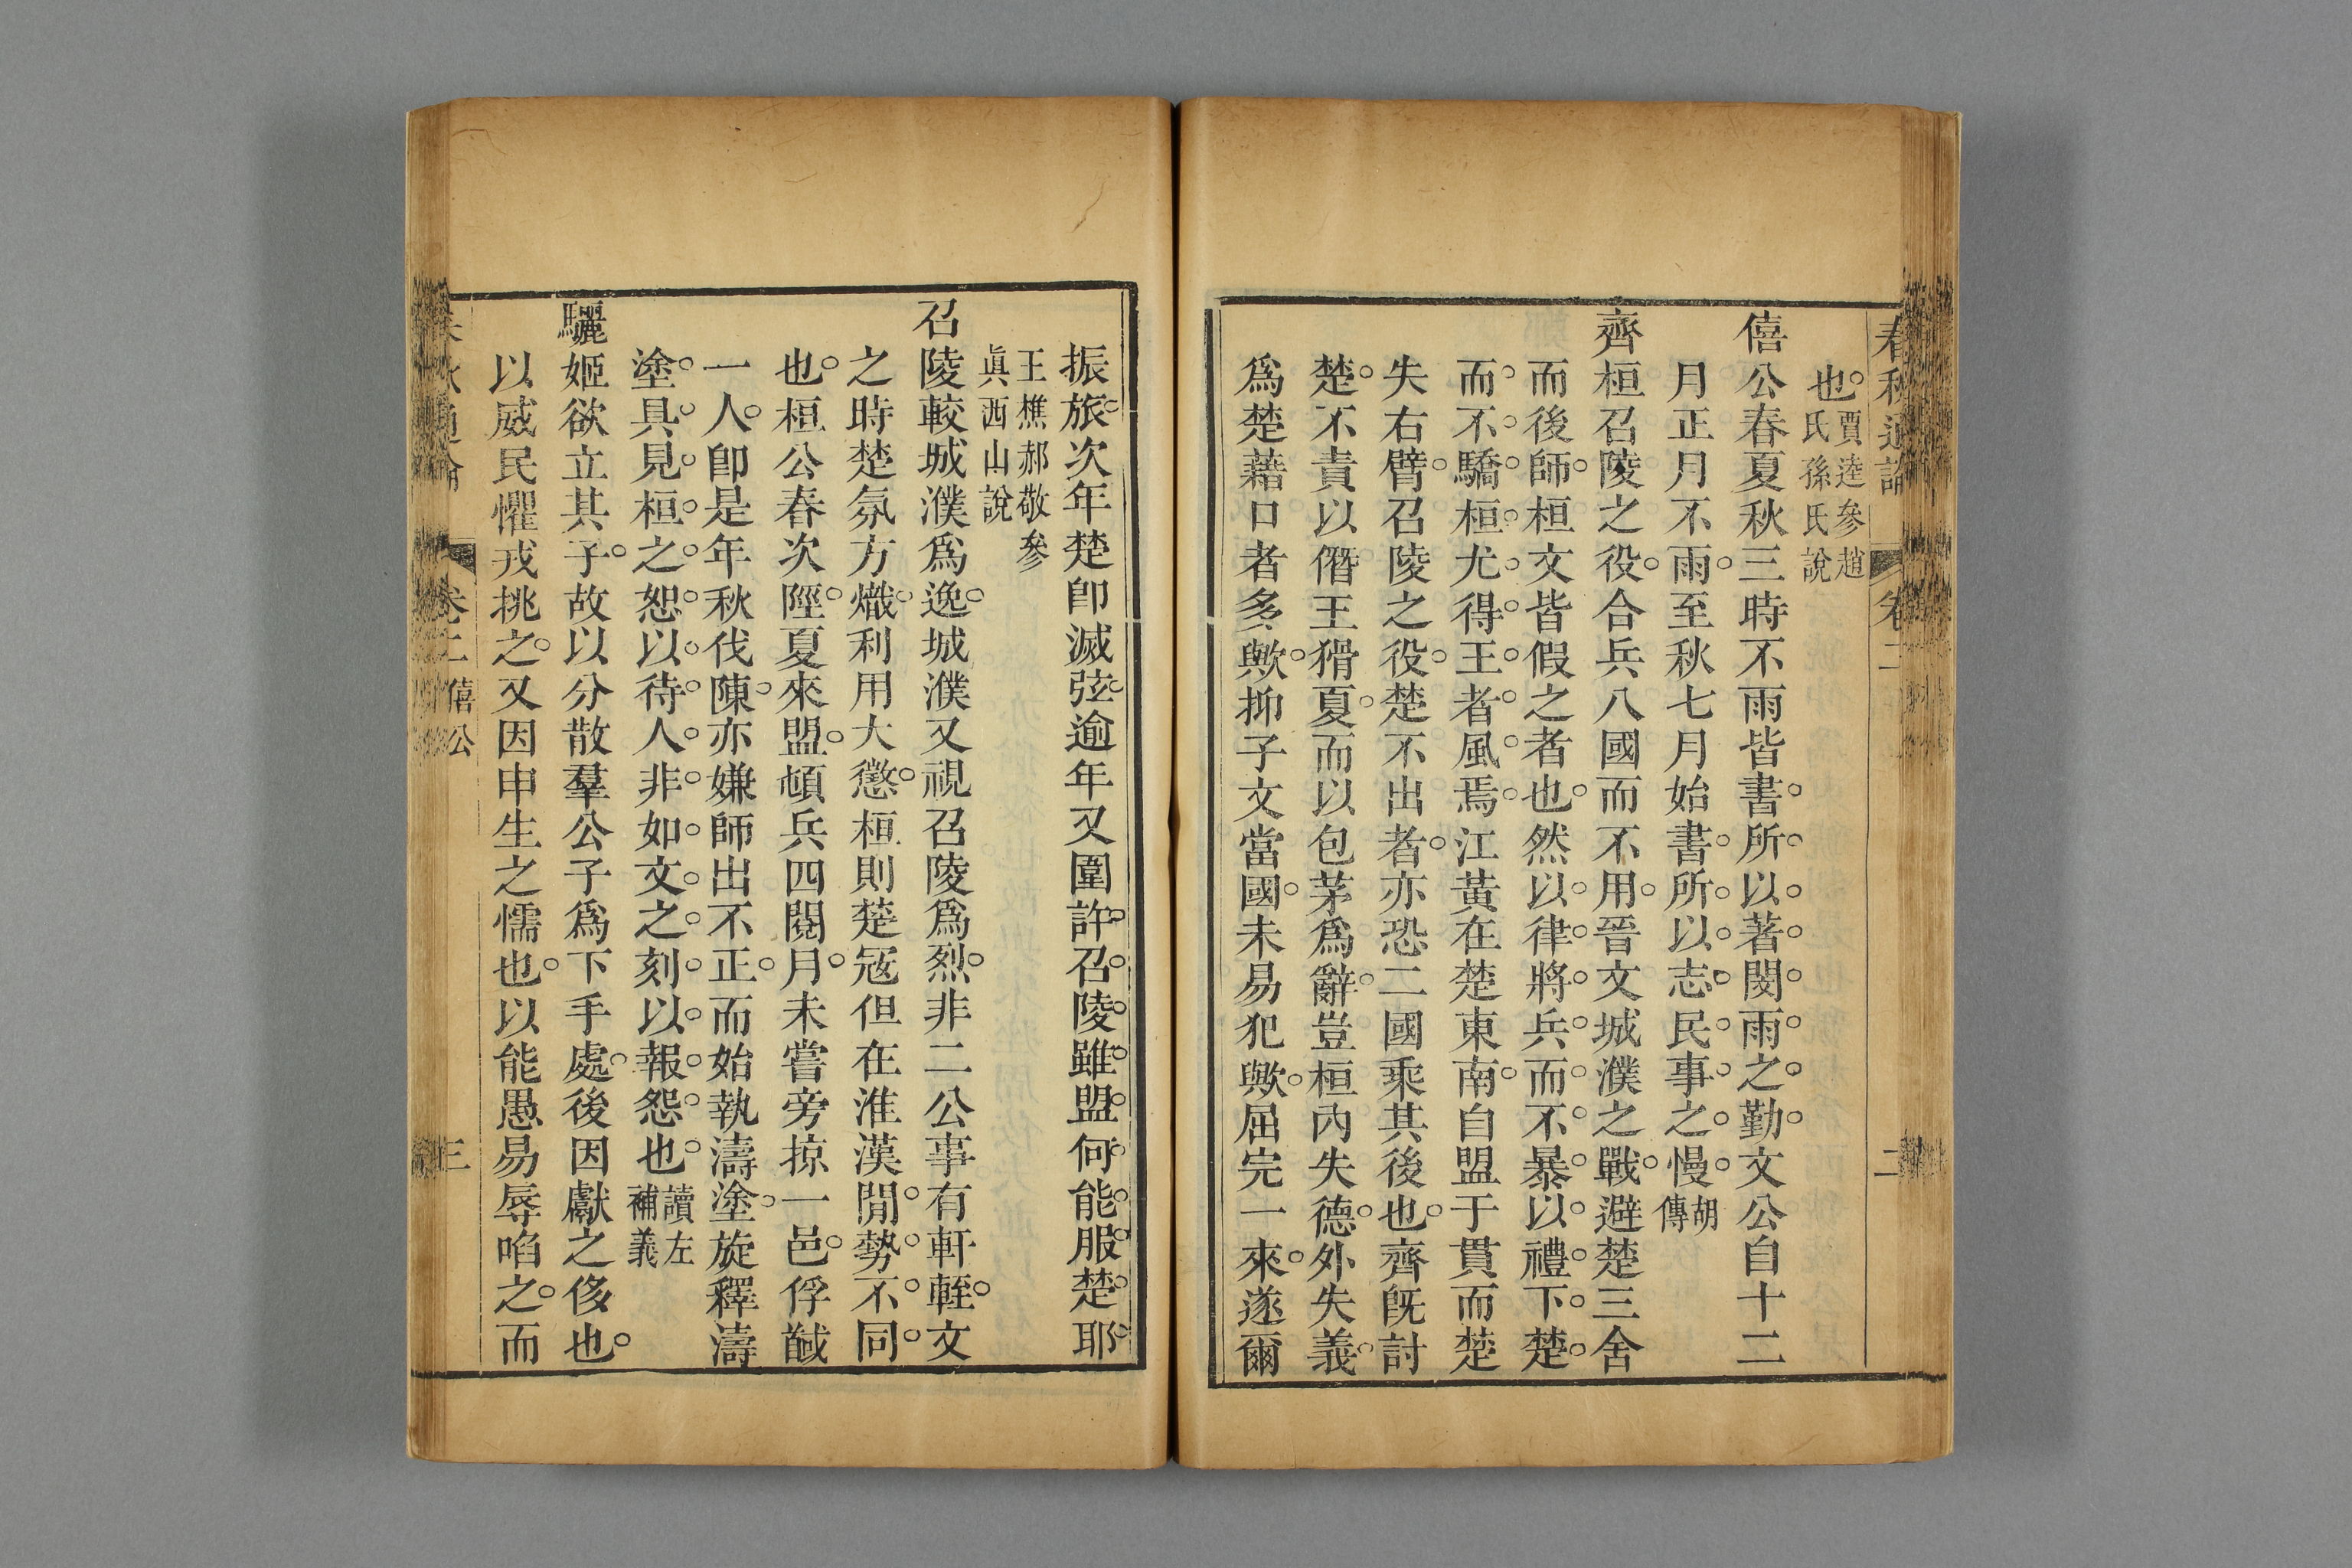 春秋通論 卷二 二
也賈逵參趙氏孫氏說
僖公春夏秋三時不雨皆書所以著閔雨之勤文公自十二
月正月不雨至秋七月始書所以志民事之慢胡傳
齊桓召陵之役合兵八國而不用晉文城濮之戰避楚三舍
而後師桓文皆假之者也然以律將兵而不暴以禮下楚
而不驕桓尤得王者風焉江黃在楚東南自盟于貫而楚
失右臂召陵之役楚不出者亦恐二國乘其後也齊旣討
楚不責以僭王猾夏而以包茅爲辭豈桓內失德外失義
爲楚藉口者多歟抑子文當國未易犯歟屈完一來遂爾
振旅次年楚卽滅弦逾年又圍許召陵雖盟何能服楚耶
王樵郝敬參眞西山說
召陵較城濮爲逸城濮又視召陵爲烈非二公事有軒輊文
之時楚氛方熾利用大懲桓則楚寇但在淮漢閒勢不同
也桓公春次陘夏來盟頓兵四閱月未嘗旁掠一邑俘馘
一人卽是年秋伐陳亦嫌師出不正而始執濤塗旋釋濤
塗具見桓之恕以待人非如文之刻以報怨也讀左補義
驪姬欲立其子故以分散羣公子爲下手處後因獻之侈也
以威民懼戎挑之又因申生之懦也以能愚易辱啗之而
春秋通論 卷二 僖公 三